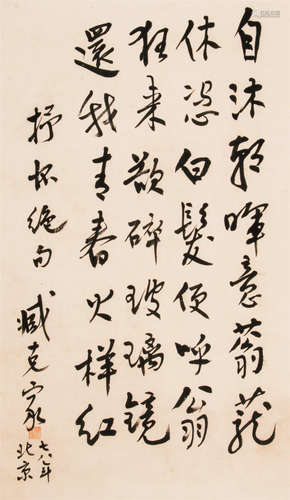 自沐朝暉意蓊蘢
休憑白髮便呼翁
狂来欲碎玻璃鏡
還我青春火样红
抒怀绝句
臧克家
七八年
北京